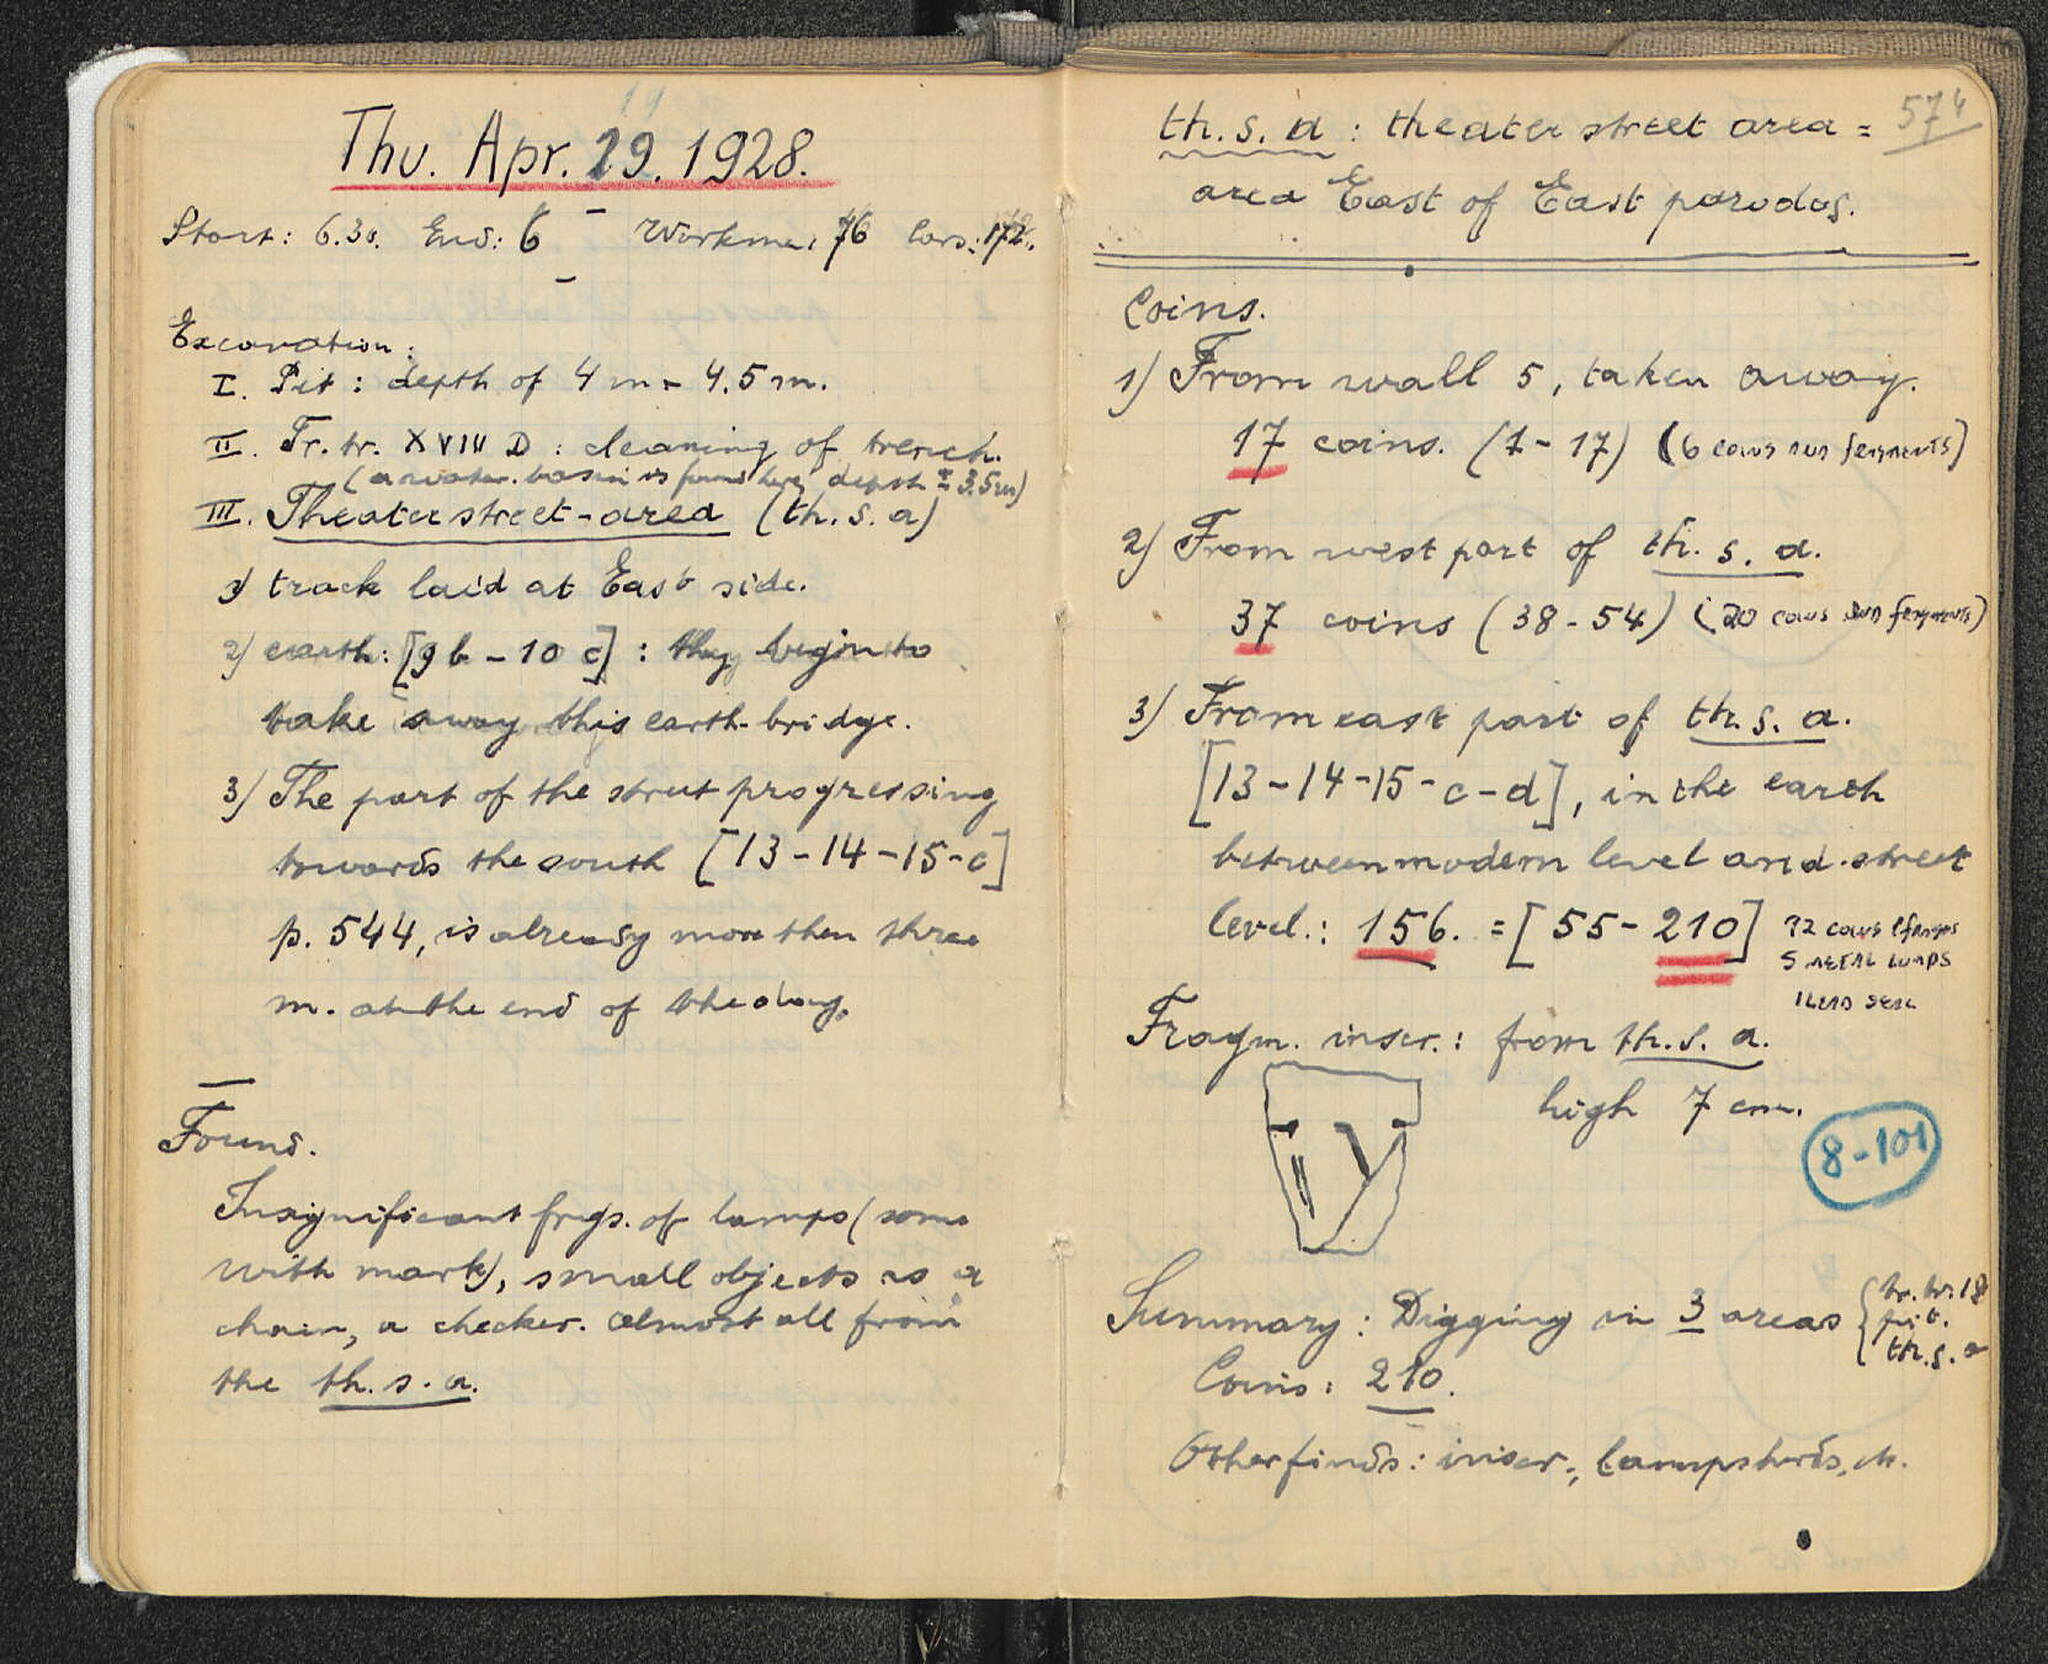 19
Thu. Apr. 19. 1928.
Start: 6.30. End: 6 Workmen: 76 Cars: 172.
Excavation:
I. Pit: depth of 4 m - 4.5 m.
II. Tr. tr. XVIII D: cleaning of trench.
(a water-basin is found here, depth ± 3.5 m)
III. Theater street-area (th. s. a)
1) track laid at East side.
2) earth: [9 b - 10 c]: they begin to
take away this earth-bridge.
3) The part of the street progressing
towards the south [13-14-15-c]
p. 544, is already more then three
m. at the end of the day.
Found.
Insignificant frgs. of lamps (some
with mark), small objects as a
chain, a checker. Almost all from
the th. s. a.
574
th. s. a: theater street area =
area East of East parodos.
Coins.
1) From wall 5, taken away.
17 coins. (1-17) (6 coins and fragments)
2) From west part of th. s. a.
37 coins (38-54) (20 coins and fragments)
3) From east part of th. s. a.
[13-14-15-c-d], in the earth
between modern level and street
level: 156. = [55-210] 92 coins & frags
5 metal lumps
1 lead seal
Fragm. inscr.: from th. s. a.
high 7 cm.
8-101
Summary: Digging in 3 areas { tr. tr. 18
pit.
th. s. a
Coins: 210.
Other finds: inscr., lampsherds,